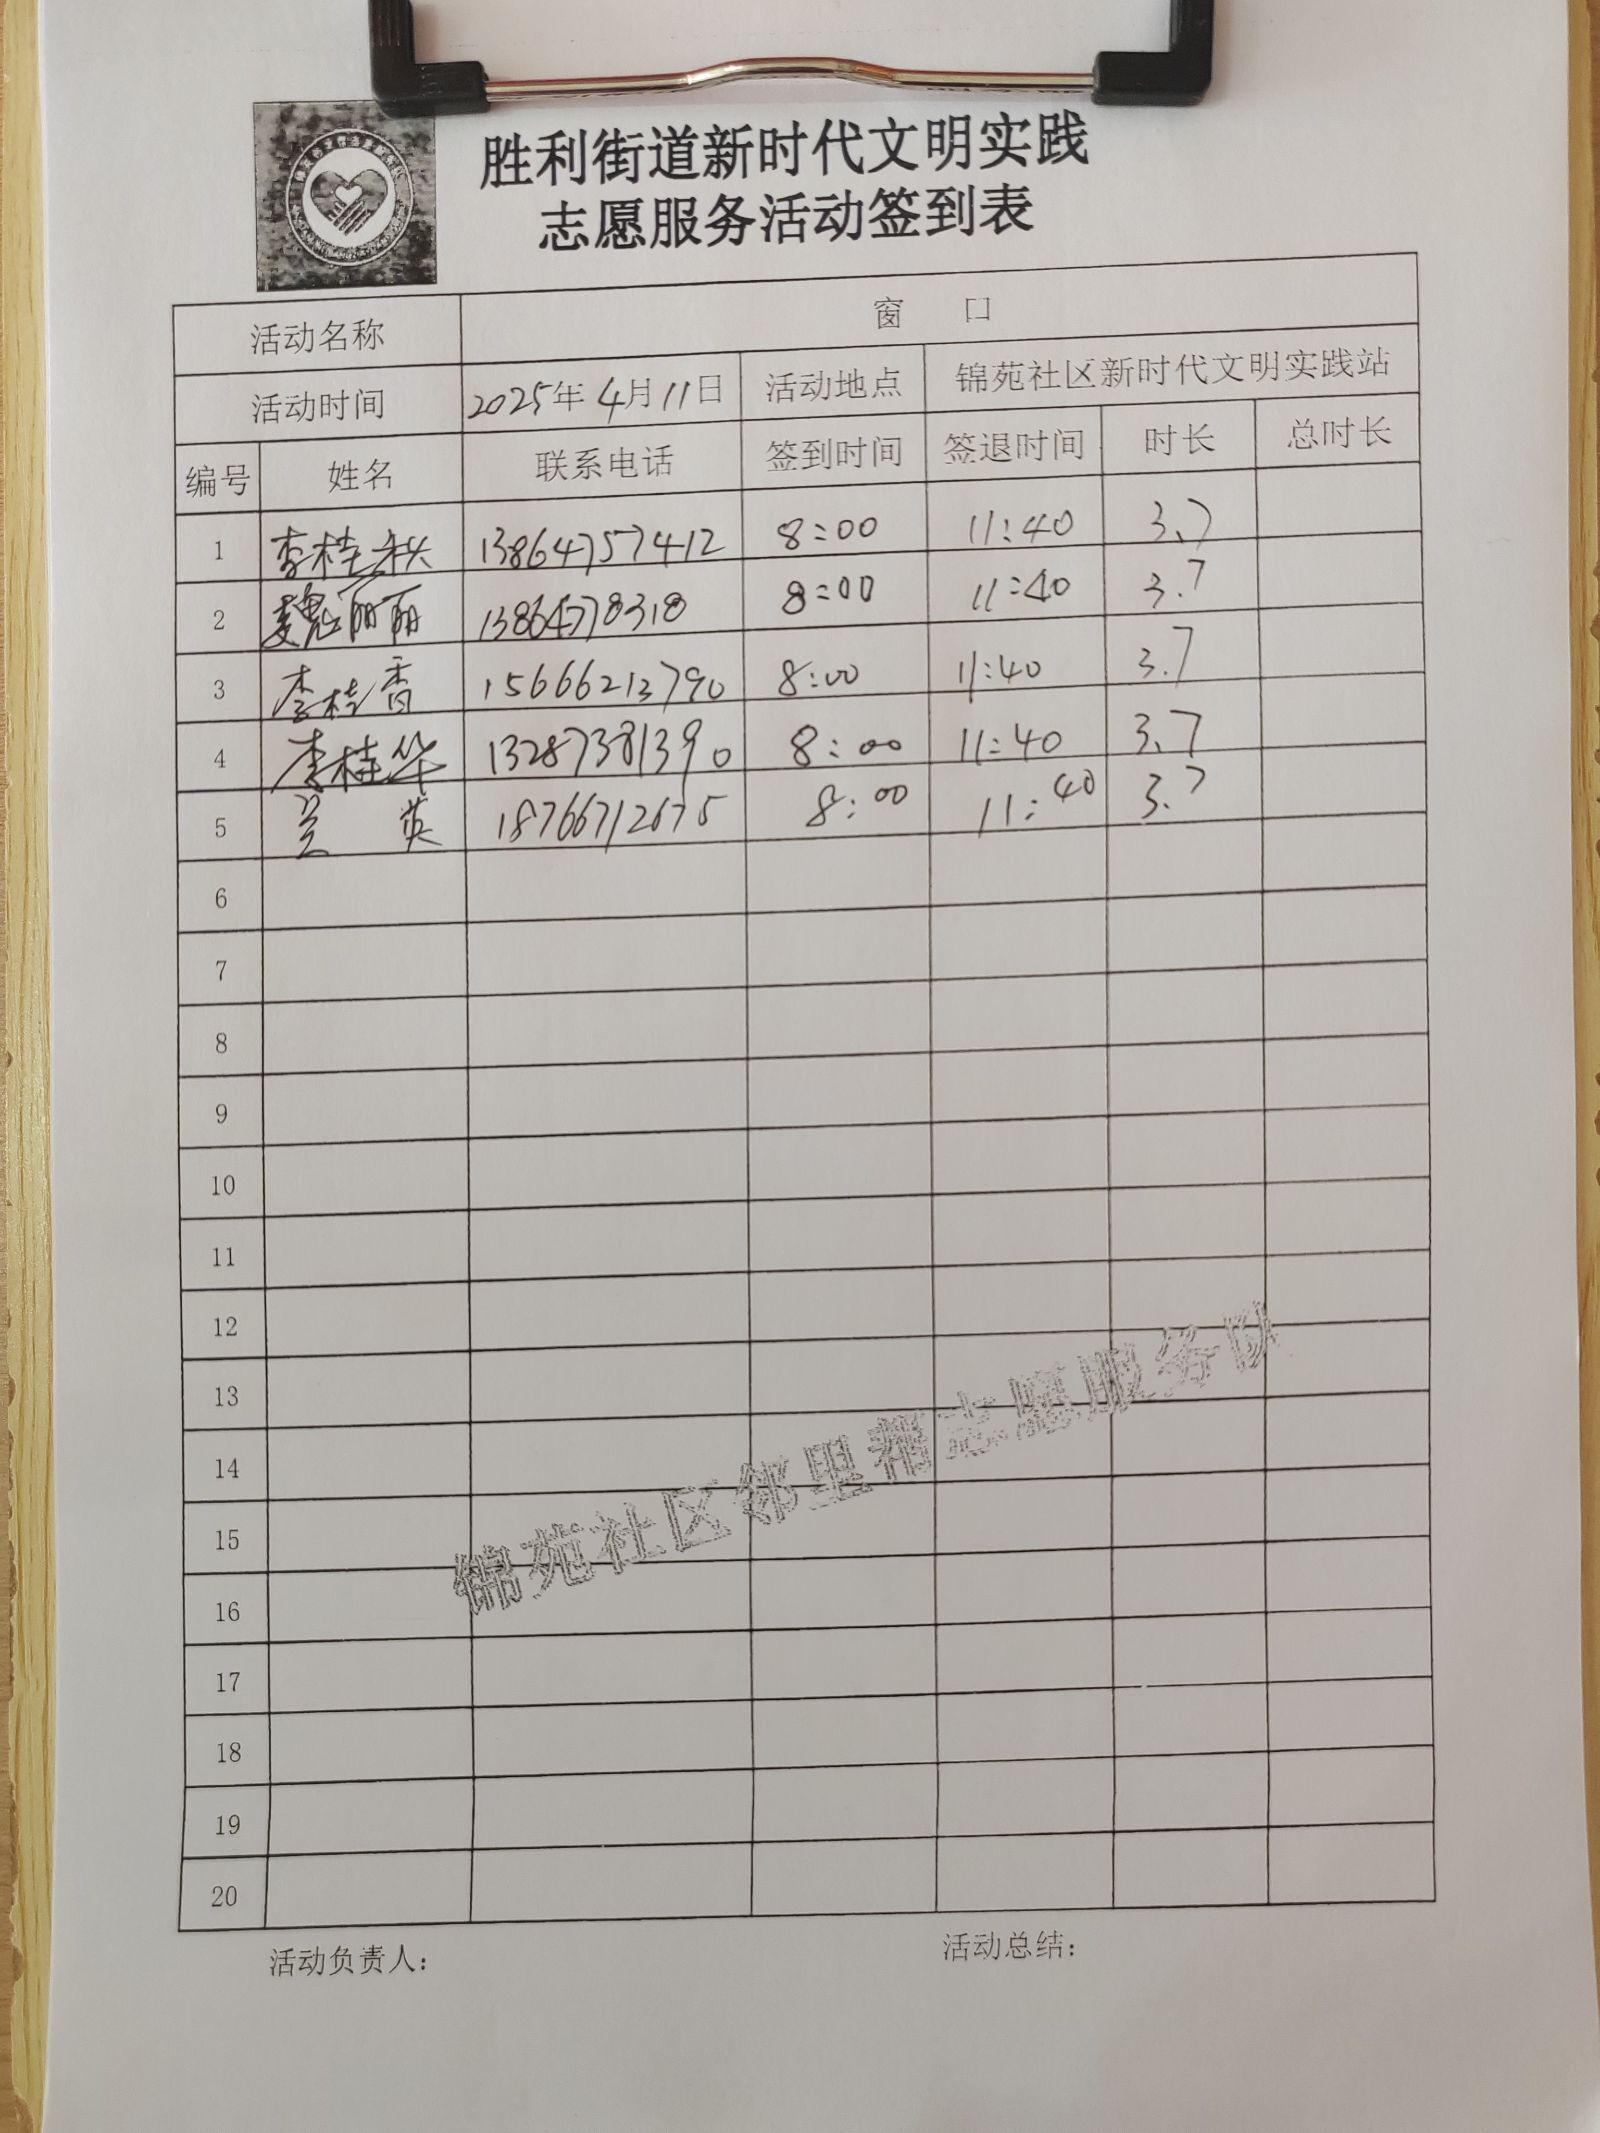 胜利街道新时代文明实践
志愿服务活动签到表
活动名称 窗 口
活动时间 2025年4月11日 活动地点 锦苑社区新时代文明实践站
编号 姓名 联系电话 签到时间 签退时间 时长 总时长
1 李桂秋 13864757412 8:00 11:40 3.7
2 魏丽丽 13864778318 8:00 11:40 3.7
3 李桂香 15666213790 8:00 11:40 3.7
4 李桂华 13287381390 8:00 11:40 3.7
5 兰英 18766712675 8:00 11:40 3.7
6
7
8
9
10
11
12
13
14
15
16
17
18
19
20
锦苑社区邻里帮志愿服务队
活动负责人: 活动总结: